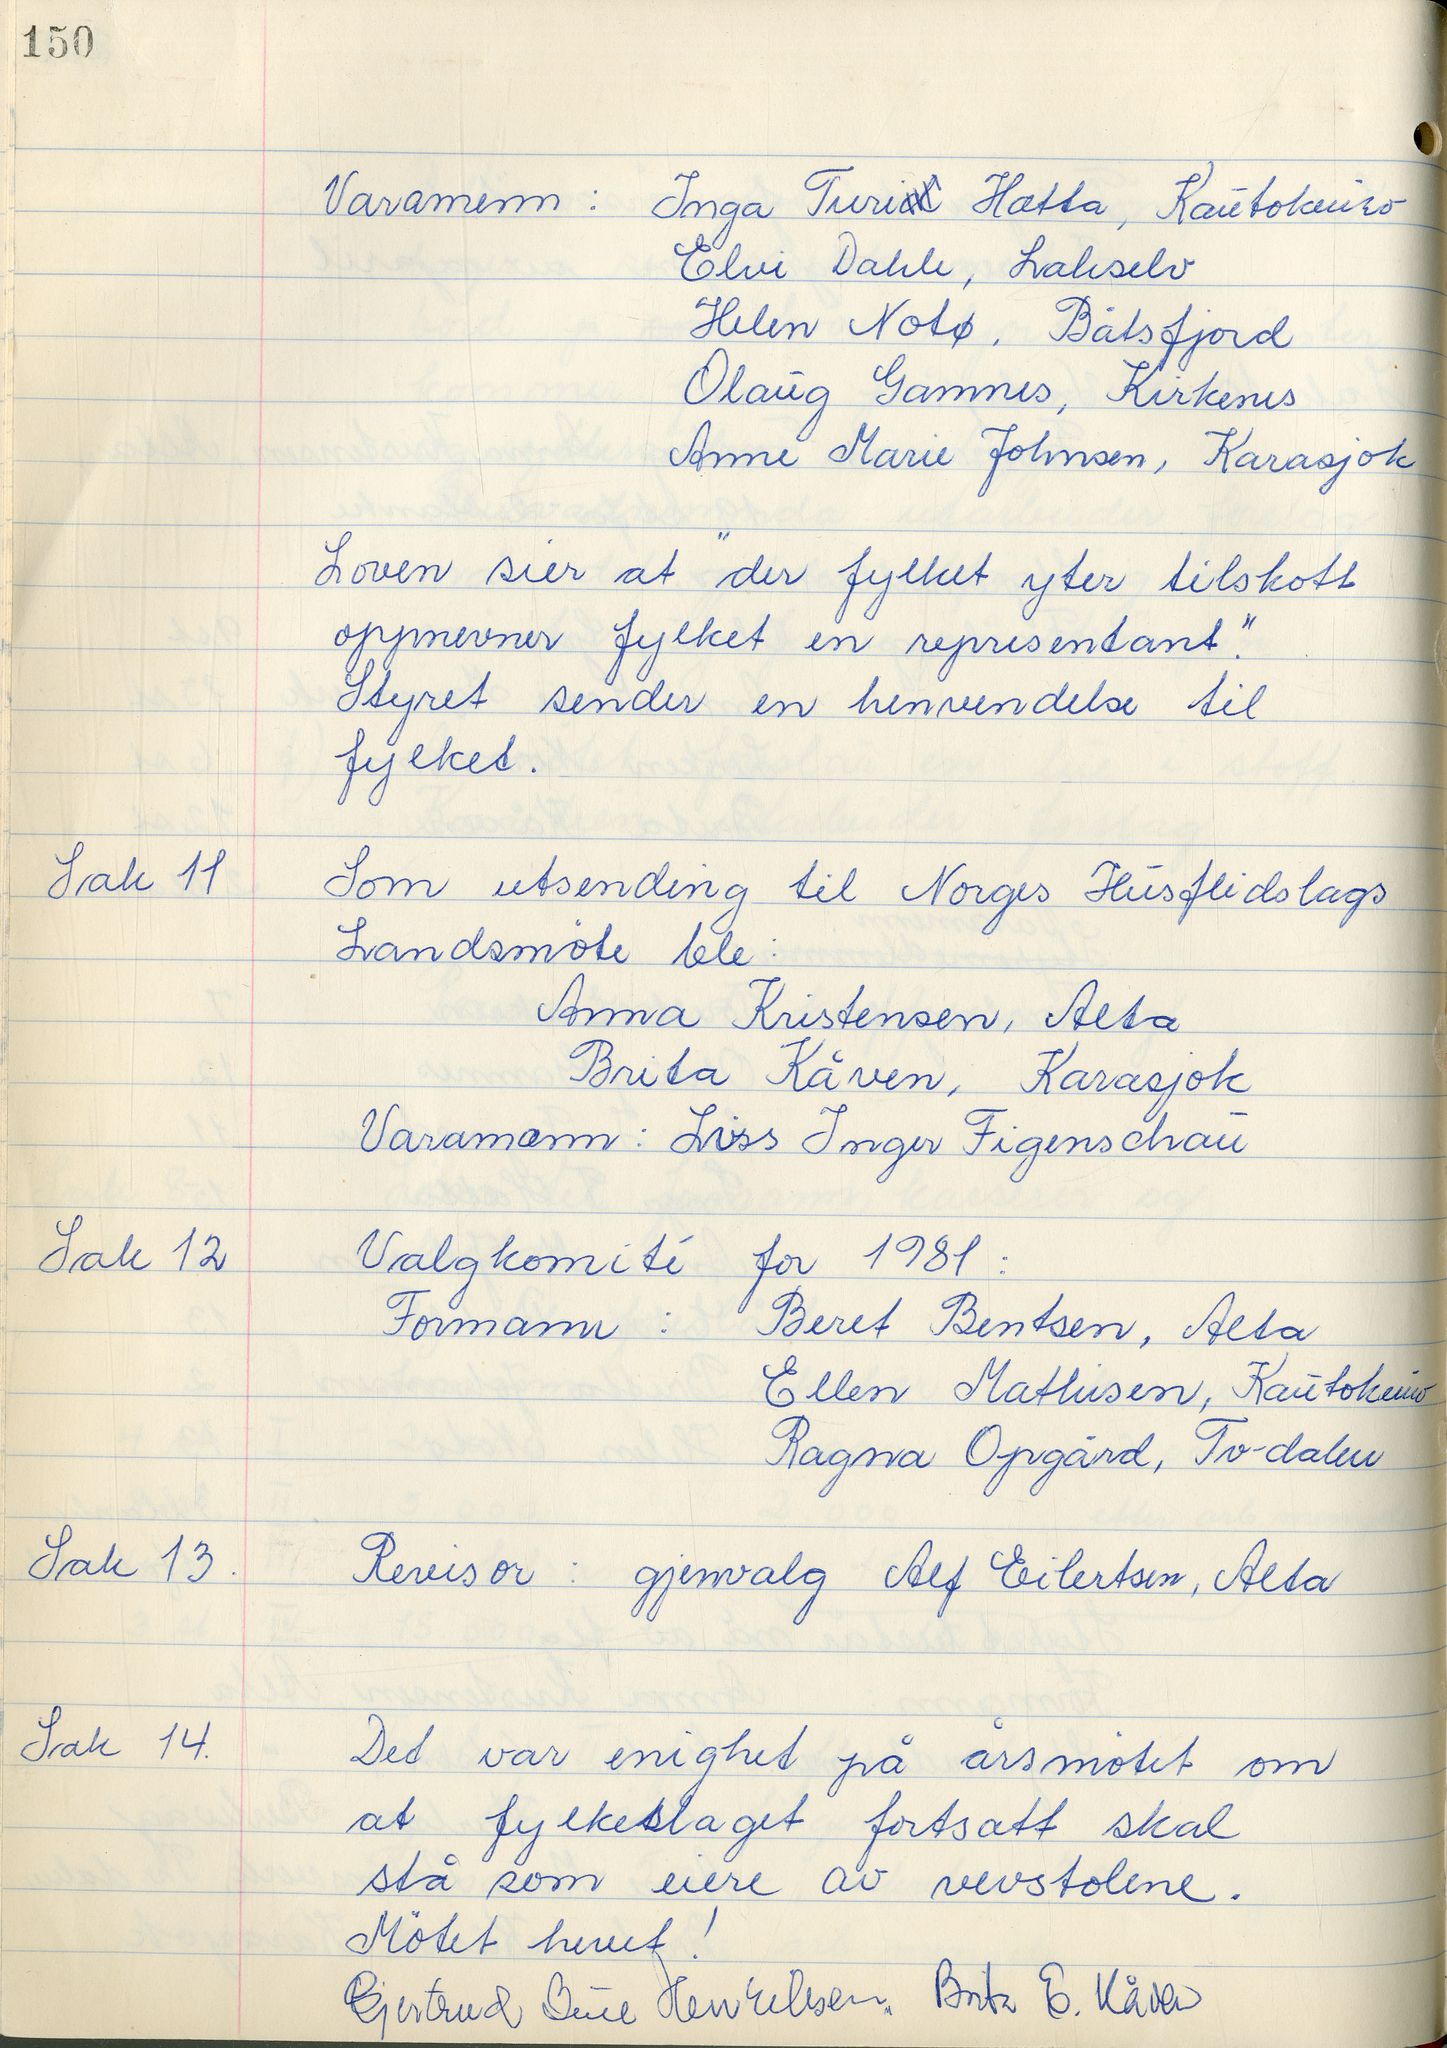 150
Varamenn : Inga Turi Hætta, Kautokeino
Elvi Dahle, Lakselv
Helen Notø, Båtsfjord
Olaug Gamnes, Kirkenes
Anne Marie Johnsen, Karasjok
Loven sier at "der fylket yter tilskott
oppnevner fylket en representant."
Styret sender en henvendelse til
fylket.
Sak 11 Som utsending til Norges Husflidslags
Landsmöte ble :
Anna Kristensen, Alta
Brita Kåven, Karasjok
Varamann : Liss Inger Figenschau
Sak 12 Valgkomité for 1981 :
Formann : Beret Bentsen, Alta
Ellen Mathisen, Kautokeino
Ragna Opgård, Tv-dalen
Sak 13. Revisor : gjenvalg Alf Eilertsen, Alta
Sak 14. Det var enighet på årsmötet om
at fylkeslaget fortsatt skal
stå som eiere av vevstolene.
Mötet hevet!
Gjertrud Henriksen. Brita E. Kåven